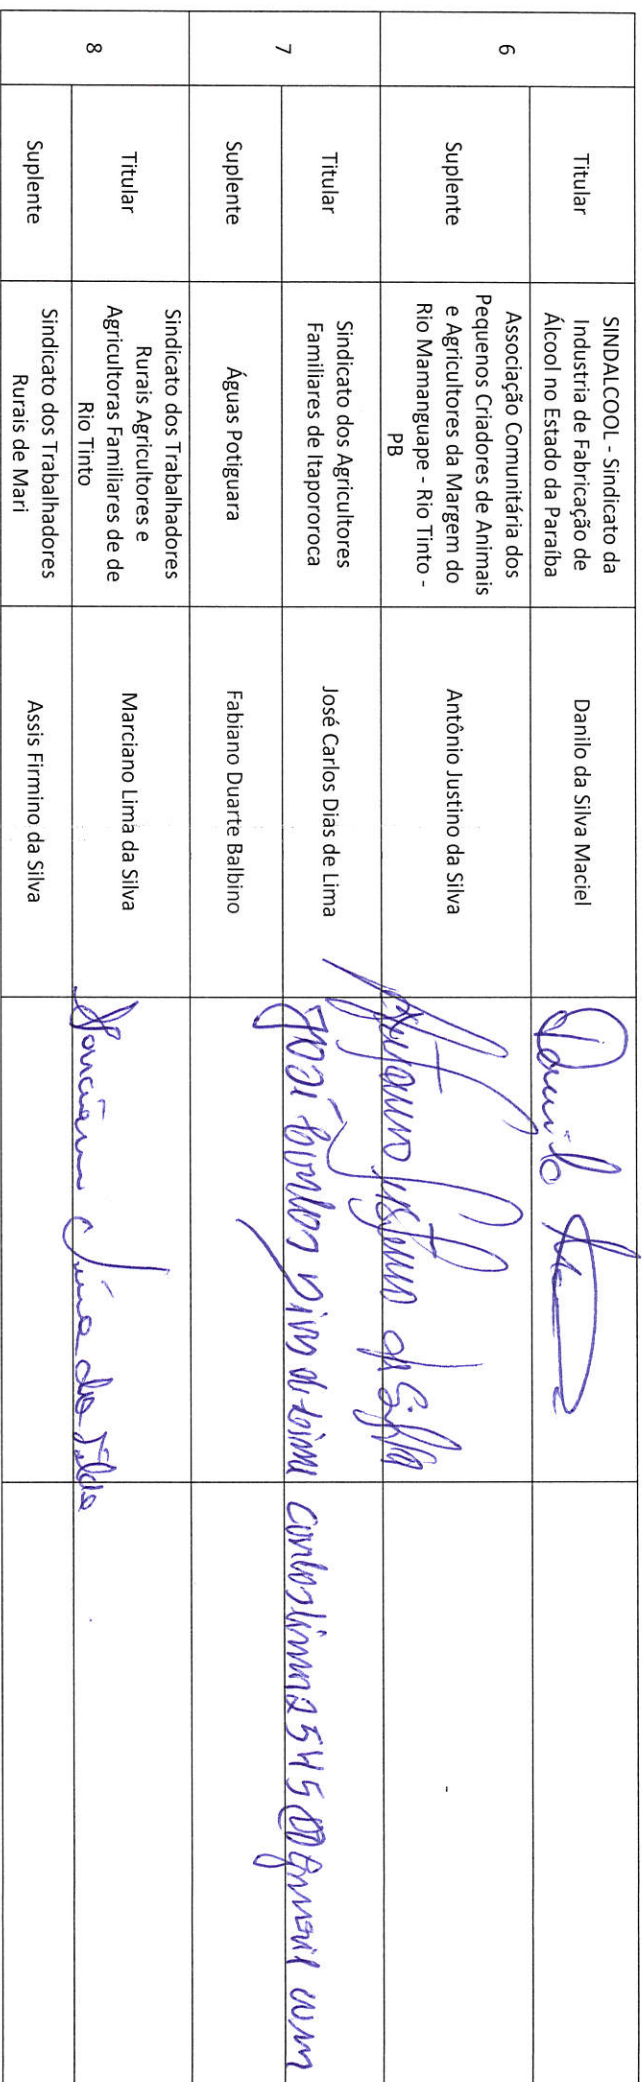 6
Titular
SINDALCOOL - Sindicato da
Industria de Fabricação de
Álcool no Estado da Paraíba
Danilo da Silva Maciel
Danilo
Suplente
Associação Comunitária dos
Pequenos Criadores de Animais
e Agricultores da Margem do
Rio Mamanguape - Rio Tinto -
PB
Antônio Justino da Silva
Antonio Justino da Silva
7
Titular
Sindicato dos Agricultores
Familiares de Itapororoca
José Carlos Dias de Lima
José Carlos Dias de Lima
Suplente
Águas Potiguara
Fabiano Duarte Balbino
8
Titular
Sindicato dos Trabalhadores
Rurais Agricultores e
Agricultoras Familiares de de
Rio Tinto
Marciano Lima da Silva
Marciano Lima da Silva
Suplente
Sindicato dos Trabalhadores
Rurais de Mari
Assis Firmino da Silva